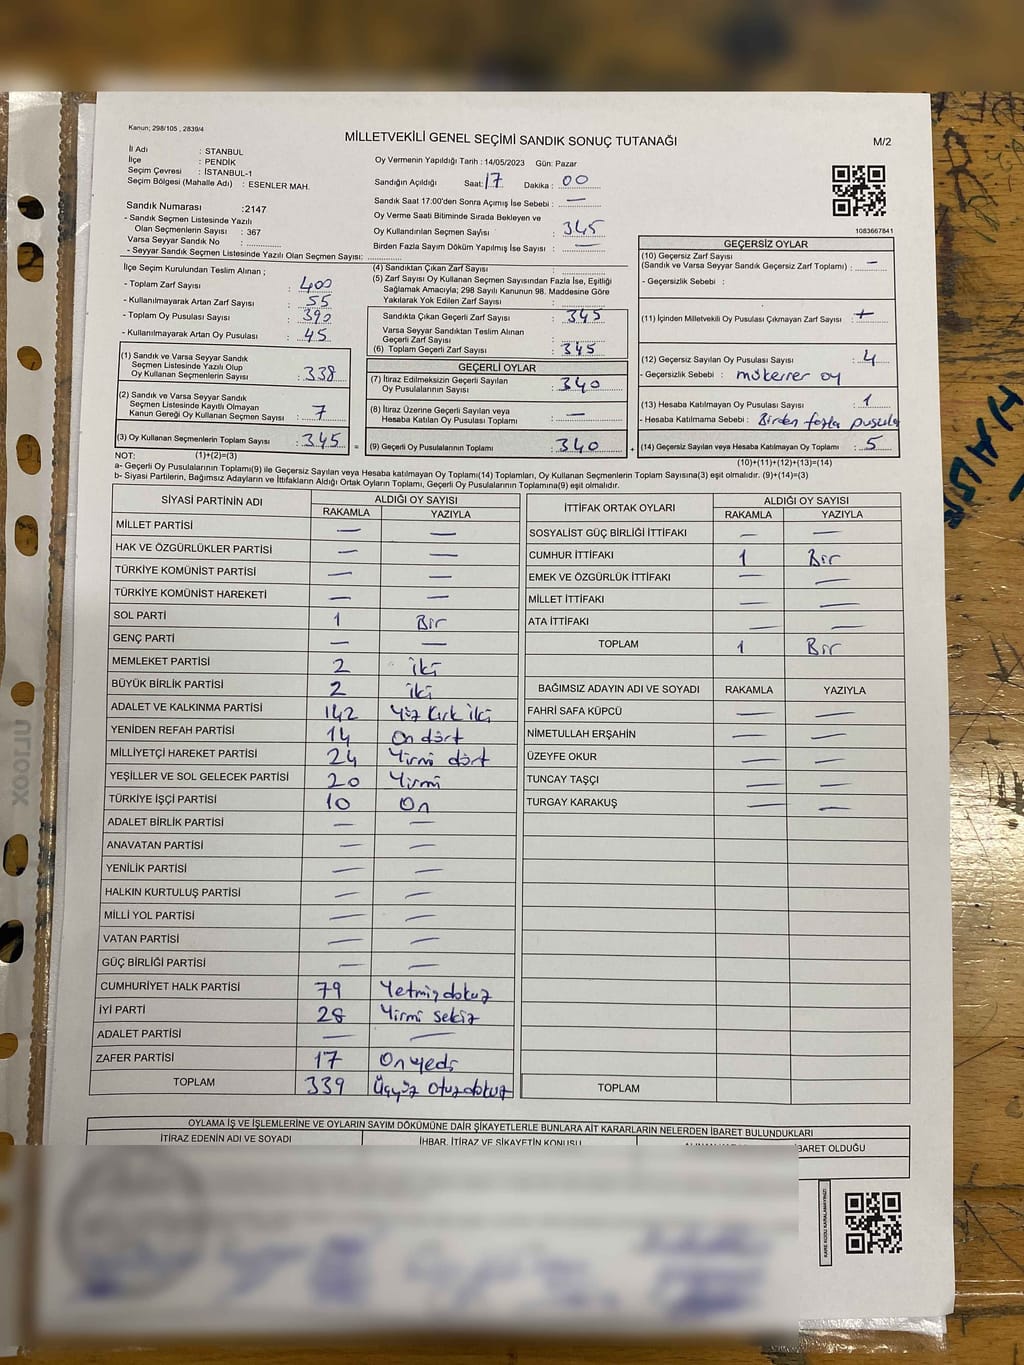 Kanun; 298/105 , 2839/4
MİLLETVEKİLİ GENEL SEÇİMİ SANDIK SONUÇ TUTANAĞI
M/2
İl Adı : İSTANBUL
İlçe : PENDİK
Seçim Çevresi : İSTANBUL-1
Seçim Bölgesi (Mahalle Adı) : ESENLER MAH.
Sandık Numarası :2147
- Sandık Seçmen Listesinde Yazılı
Olan Seçmenlerin Sayısı : 367
Varsa Seyyar Sandık No :
- Seyyar Sandık Seçmen Listesinde Yazılı Olan Seçmen Sayısı:
Oy Vermenin Yapıldığı Tarih : 14/05/2023 Gün: Pazar
Sandığın Açıldığı Saat: 17 Dakika : 00
Sandık Saat 17:00'den Sonra Açımış İse Sebebi : —
Oy Verme Saati Bitiminde Sırada Bekleyen ve
Oy Kullandırılan Seçmen Sayısı : 345
Birden Fazla Sayım Döküm Yapılmış İse Sayısı : —
1083667841
İlçe Seçim Kurulundan Teslim Alınan ;
- Toplam Zarf Sayısı : 400
- Kullanılmayarak Artan Zarf Sayısı : 55
- Toplam Oy Pusulası Sayısı : 390
- Kullanılmayarak Artan Oy Pusulası : 45
(1) Sandık ve Varsa Seyyar Sandık
Seçmen Listesinde Yazılı Olup
Oy Kullanan Seçmenlerin Sayısı : 338
(2) Sandık ve Varsa Seyyar Sandık
Seçmen Listesinde Kayıtlı Olmayan
Kanun Gereği Oy Kullanan Seçmen Sayısı : 7
(3) Oy Kullanan Seçmenlerin Toplam Sayısı : 345 =
(4) Sandıktan Çıkan Zarf Sayısı :
(5) Zarf Sayısı Oy Kullanan Seçmen Sayısından Fazla İse, Eşitliği
Sağlamak Amacıyla; 298 Sayılı Kanunun 98. Maddesine Göre
Yakılarak Yok Edilen Zarf Sayısı :
Sandıkta Çıkan Geçerli Zarf Sayısı : 345
Varsa Seyyar Sandıktan Teslim Alınan
Geçerli Zarf Sayısı :
(6) Toplam Geçerli Zarf Sayısı : 345
GEÇERLİ OYLAR
(7) İtiraz Edilmeksizin Geçerli Sayılan
Oy Pusulalarının Sayısı : 340
(8) İtiraz Üzerine Geçerli Sayılan veya
Hesaba Katılan Oy Pusulalarının Toplamı : —
(9) Geçerli Oy Pusulalarının Toplamı : 340 +
GEÇERSİZ OYLAR
(10) Geçersiz Zarf Sayısı
(Sandık ve Varsa Seyyar Sandık Geçersiz Zarf Toplamı) : —
- Geçersizlik Sebebi :
(11) İçinden Milletvekili Oy Pusulası Çıkmayan Zarf Sayısı :
(12) Geçersiz Sayılan Oy Pusulası Sayısı : 4
- Geçersizlik Sebebi : mükerrer oy
(13) Hesaba Katılmayan Oy Pusulası Sayısı : 1
- Hesaba Katılmama Sebebi : Birden fazla pusula
(14) Geçersiz Sayılan veya Hesaba Katılmayan Oy Toplamı : 5
NOT: (1)+(2)=(3)
(10)+(11)+(12)+(13)=(14)
a- Geçerli Oy Pusulalarının Toplamı(9) ile Geçersiz Sayılan veya Hesaba katılmayan Oy Toplamı(14) Toplamları, Oy Kullanan Seçmenlerin Toplam Sayısına(3) eşit olmalıdır. (9)+(14)=(3)
b- Siyasi Partilerin, Bağımsız Adayların ve İttifakların Aldığı Ortak Oyların Toplamı, Geçerli Oy Pusulalarının Toplamına(9) eşit olmalıdır.
SİYASİ PARTİNİN ADI ALDIĞI OY SAYISI
RAKAMLA YAZIYLA
MİLLET PARTİSİ — —
HAK VE ÖZGÜRLÜKLER PARTİSİ — —
TÜRKİYE KOMÜNİST PARTİSİ — —
TÜRKİYE KOMÜNİST HAREKETİ — —
SOL PARTİ 1 Bir
GENÇ PARTİ — —
MEMLEKET PARTİSİ 2 iki
BÜYÜK BİRLİK PARTİSİ 2 iki
ADALET VE KALKINMA PARTİSİ 142 Yüz kırk iki
YENİDEN REFAH PARTİSİ 14 On dört
MİLLİYETÇİ HAREKET PARTİSİ 24 Yirmi dört
YEŞİLLER VE SOL GELECEK PARTİSİ 20 Yirmi
TÜRKİYE İŞÇİ PARTİSİ 10 On
ADALET BİRLİK PARTİSİ — —
ANAVATAN PARTİSİ — —
YENİLİK PARTİSİ — —
HALKIN KURTULUŞ PARTİSİ — —
MİLLİ YOL PARTİSİ — —
VATAN PARTİSİ — —
GÜÇ BİRLİĞİ PARTİSİ — —
CUMHURİYET HALK PARTİSİ 79 Yetmiş dokuz
İYİ PARTİ 28 Yirmi sekiz
ADALET PARTİSİ — —
ZAFER PARTİSİ 17 On yedi
TOPLAM 339 Üçyüz otuzdokuz
İTTİFAK ORTAK OYLARI ALDIĞI OY SAYISI
RAKAMLA YAZIYLA
SOSYALİST GÜÇ BİRLİĞİ İTTİFAKI — —
CUMHUR İTTİFAKI 1 Bir
EMEK VE ÖZGÜRLÜK İTTİFAKI — —
MİLLET İTTİFAKI — —
ATA İTTİFAKI — —
TOPLAM 1 Bir
BAĞIMSIZ ADAYIN ADI VE SOYADI RAKAMLA YAZIYLA
FAHRİ SAFA KÜPCÜ — —
NİMETULLAH ERŞAHİN — —
ÜZEYFE OKUR — —
TUNCAY TAŞÇI — —
TURGAY KARAKUŞ — —
TOPLAM
OYLAMA İŞ VE İŞLEMLERİNE VE OYLARIN SAYIM DÖKÜMÜNE DAİR ŞİKAYETLERLE BUNLARA AİT KARARLARIN NELERDEN İBARET BULUNDUKLARI
İTİRAZ EDENİN ADI VE SOYADI İHBAR, İTİRAZ VE ŞİKAYETİN KONUSU İBARET OLDUĞU
KARE KODU KARALAMAYINIZ!
ULTOOX